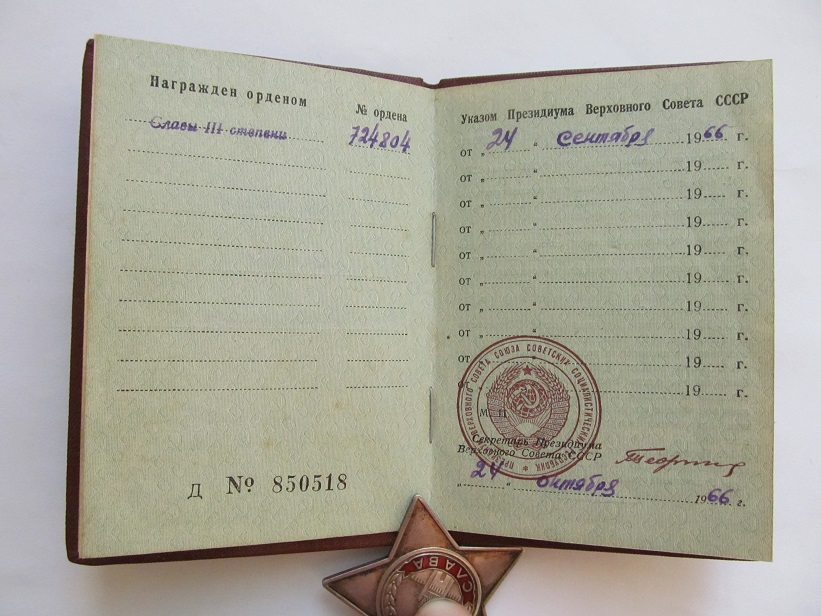 Награжден орденом
№ ордена
Славы III степени
724804
Д № 850518
Указом Президиума Верховного Совета СССР
от „ 24 “ сентября 1966 г.
от „ “ 19 г.
от „ “ 19 г.
от „ “ 19 г.
от „ “ 19 г.
от „ “ 19 г.
от „ “ 19 г.
от „ “ 19 г.
от „ “ 19 г.
от „ “ 19 г.
М. П.
Секретарь Президиума
Верховного Совета СССР
„ 24 “ октября 1966 г.
ПРЕЗИДИУМ ВЕРХОВНОГО СОВЕТА СОЮЗА СОВЕТСКИХ СОЦИАЛИСТИЧЕСКИХ РЕСПУБЛИК
СЛАВА